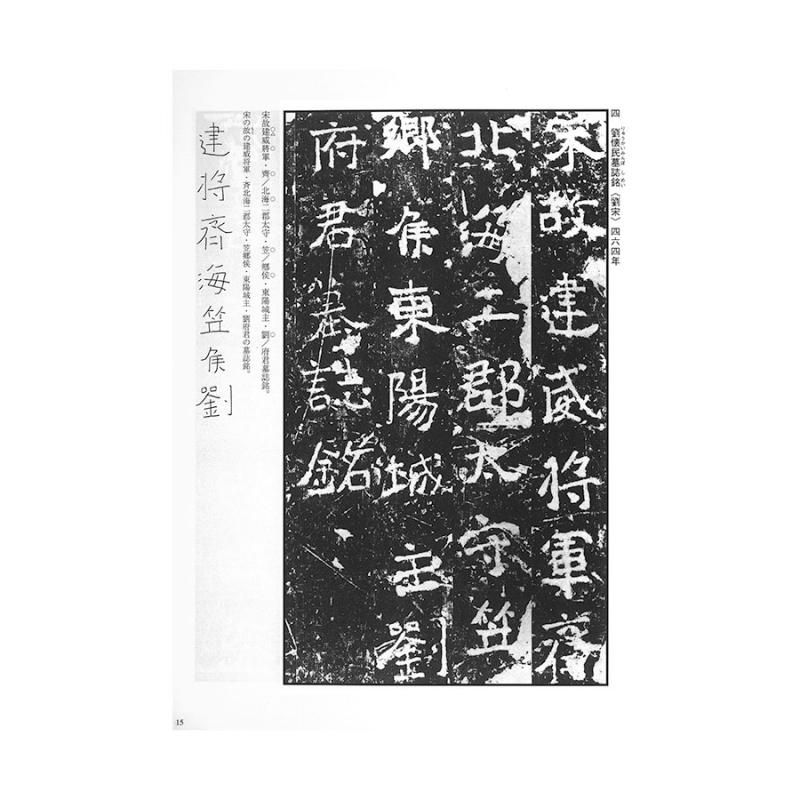 四 劉懐民墓誌銘(劉宋)四六四年
りゅうかいみんぼしめい
宋故建威将軍斉
北海二郡太守笠
郷侯東陽城主劉
府君墓誌銘
宋故建威將軍・齊/北海二郡太守・笠/鄕侯・東陽城主・劉/府君墓誌銘。
宋の故の建威将軍・斉北海二郡太守・笠郷侯・東陽城主・劉府君の墓誌銘。
建将斉海笠侯劉
15